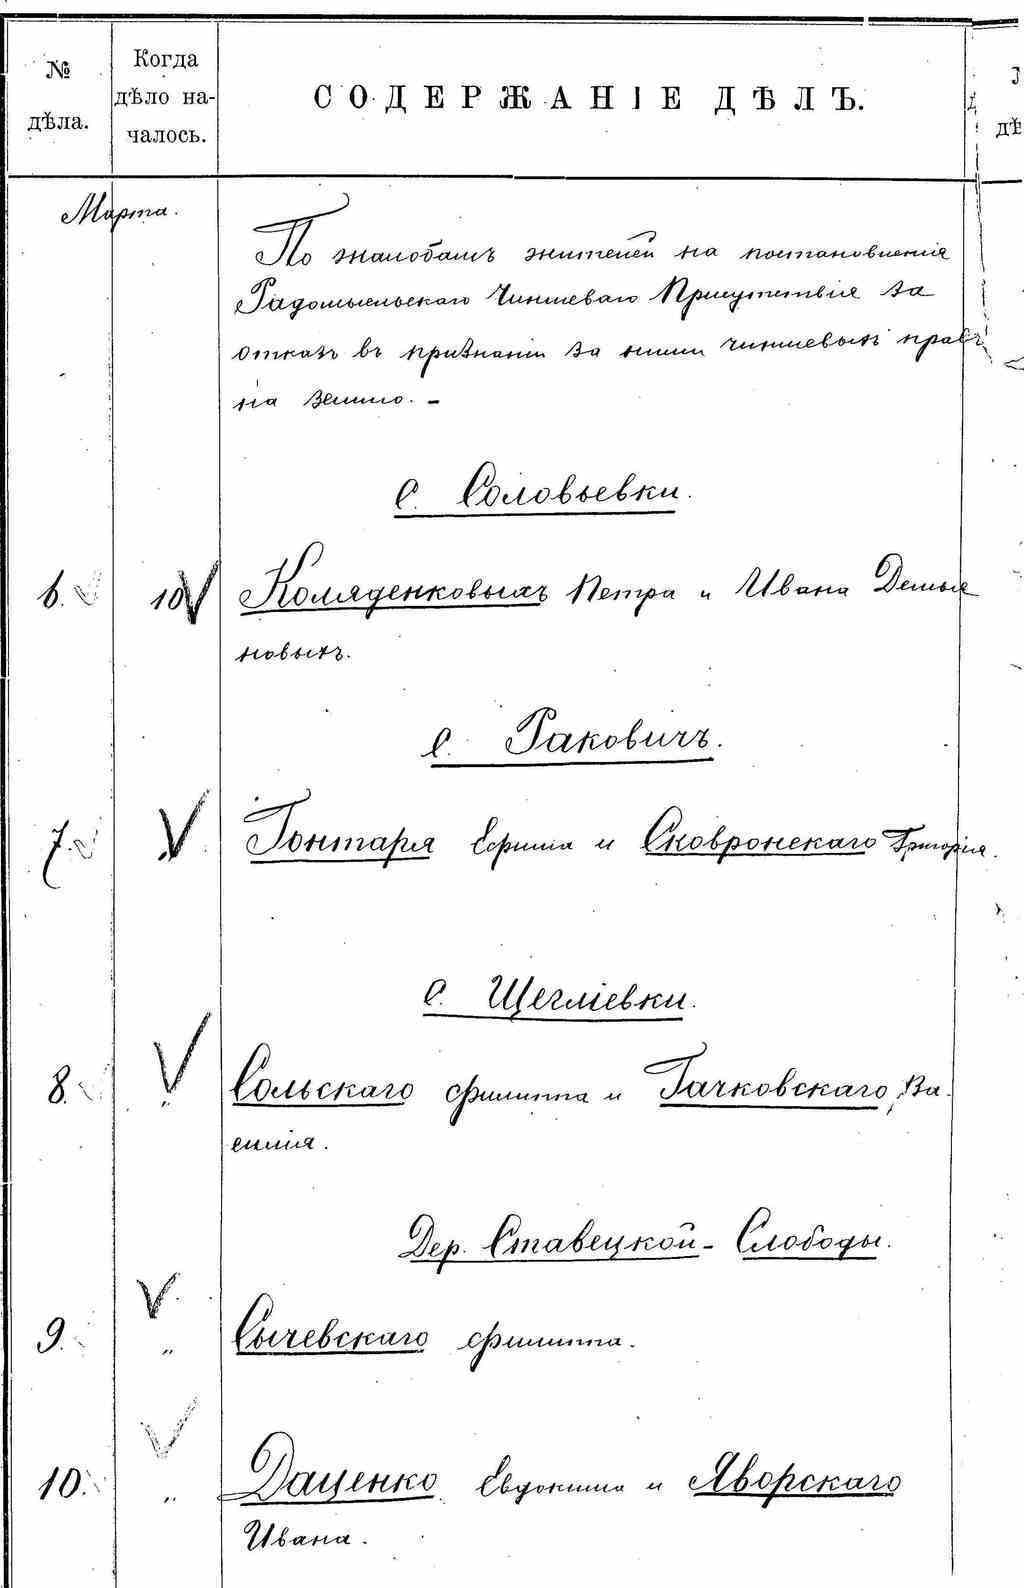 № дѣла.
Когда дѣло на-
чалось.
СОДЕРЖАНІЕ ДѢЛЪ.
дѣ
Марта.
По жалобамъ жителей на постановленія
Радомысльскаго Чиншеваго Присутствія за
отказъ въ признаніи за ними чиншевыхъ правъ
на землю. -
С. Соловьевки.
6. 10 Коляденковыхъ Петра и Ивана Демья
новыхъ.
с. Раковичъ.
7. " Гонтаря Ефима и Сковронскаго Григорія.
с. Щегліевки.
8. " Сольскаго Филиппа и Гачковскаго, Ва-
силія.
Дер. Ставецкой-Слободы.
9. " Сычевскаго Филиппа.
10. " Даценко Евдокима и Яворскаго
Ивана.